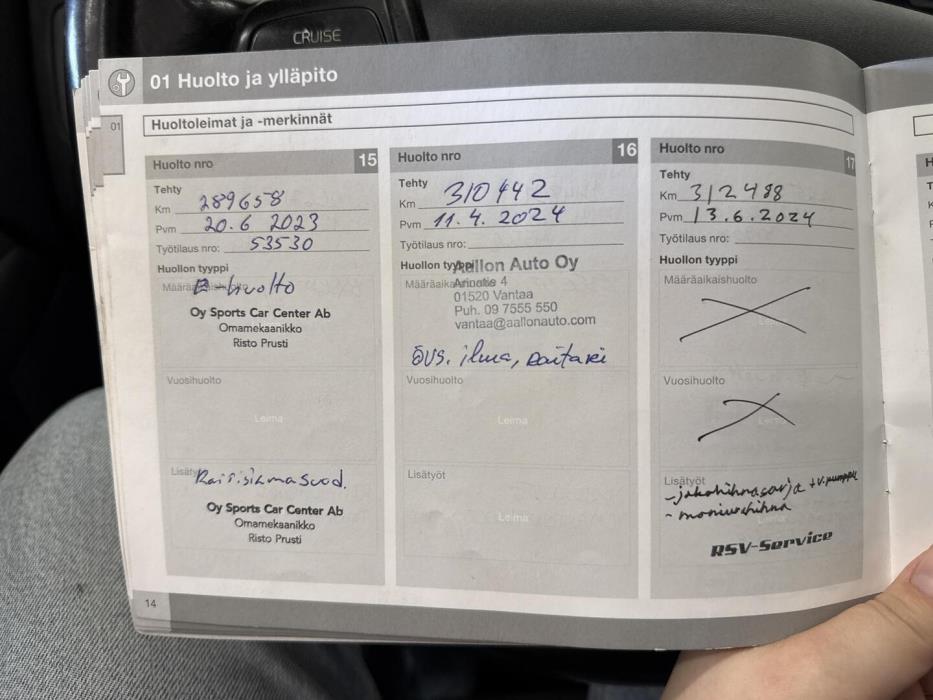 CRUISE
01 Huolto ja ylläpito
01
Huoltoleimat ja -merkinnät
Huolto nro 15
Tehty
Km 289658
Pvm 20.6 2023
Työtilaus nro: 53530
Huollon tyyppi
Määräaikaishuolto
B-huolto
Oy Sports Car Center Ab
Omamekaanikko
Risto Prusti
Vuosihuolto
Leima
Lisätyöt
Raitisilmasuod.
Oy Sports Car Center Ab
Omamekaanikko
Risto Prusti
14
Huolto nro 16
Tehty
Km 310442
Pvm 11.4. 2024
Työtilaus nro:
Huollon tyyppi
Aallon Auto Oy
Määräaikaishuolto
Arinatie 4
01520 Vantaa
Puh. 09 7555 550
vantaa@aallonauto.com
öus. ilma, raitari
Vuosihuolto
Leima
Lisätyöt
Leima
Huolto nro 17
Tehty
Km 312488
Pvm 13.6.2024
Työtilaus nro:
Huollon tyyppi
Määräaikaishuolto
Vuosihuolto
Lisätyöt
- jakohihnasarja + v.pumppu
- moniurahihna
RSV-Service